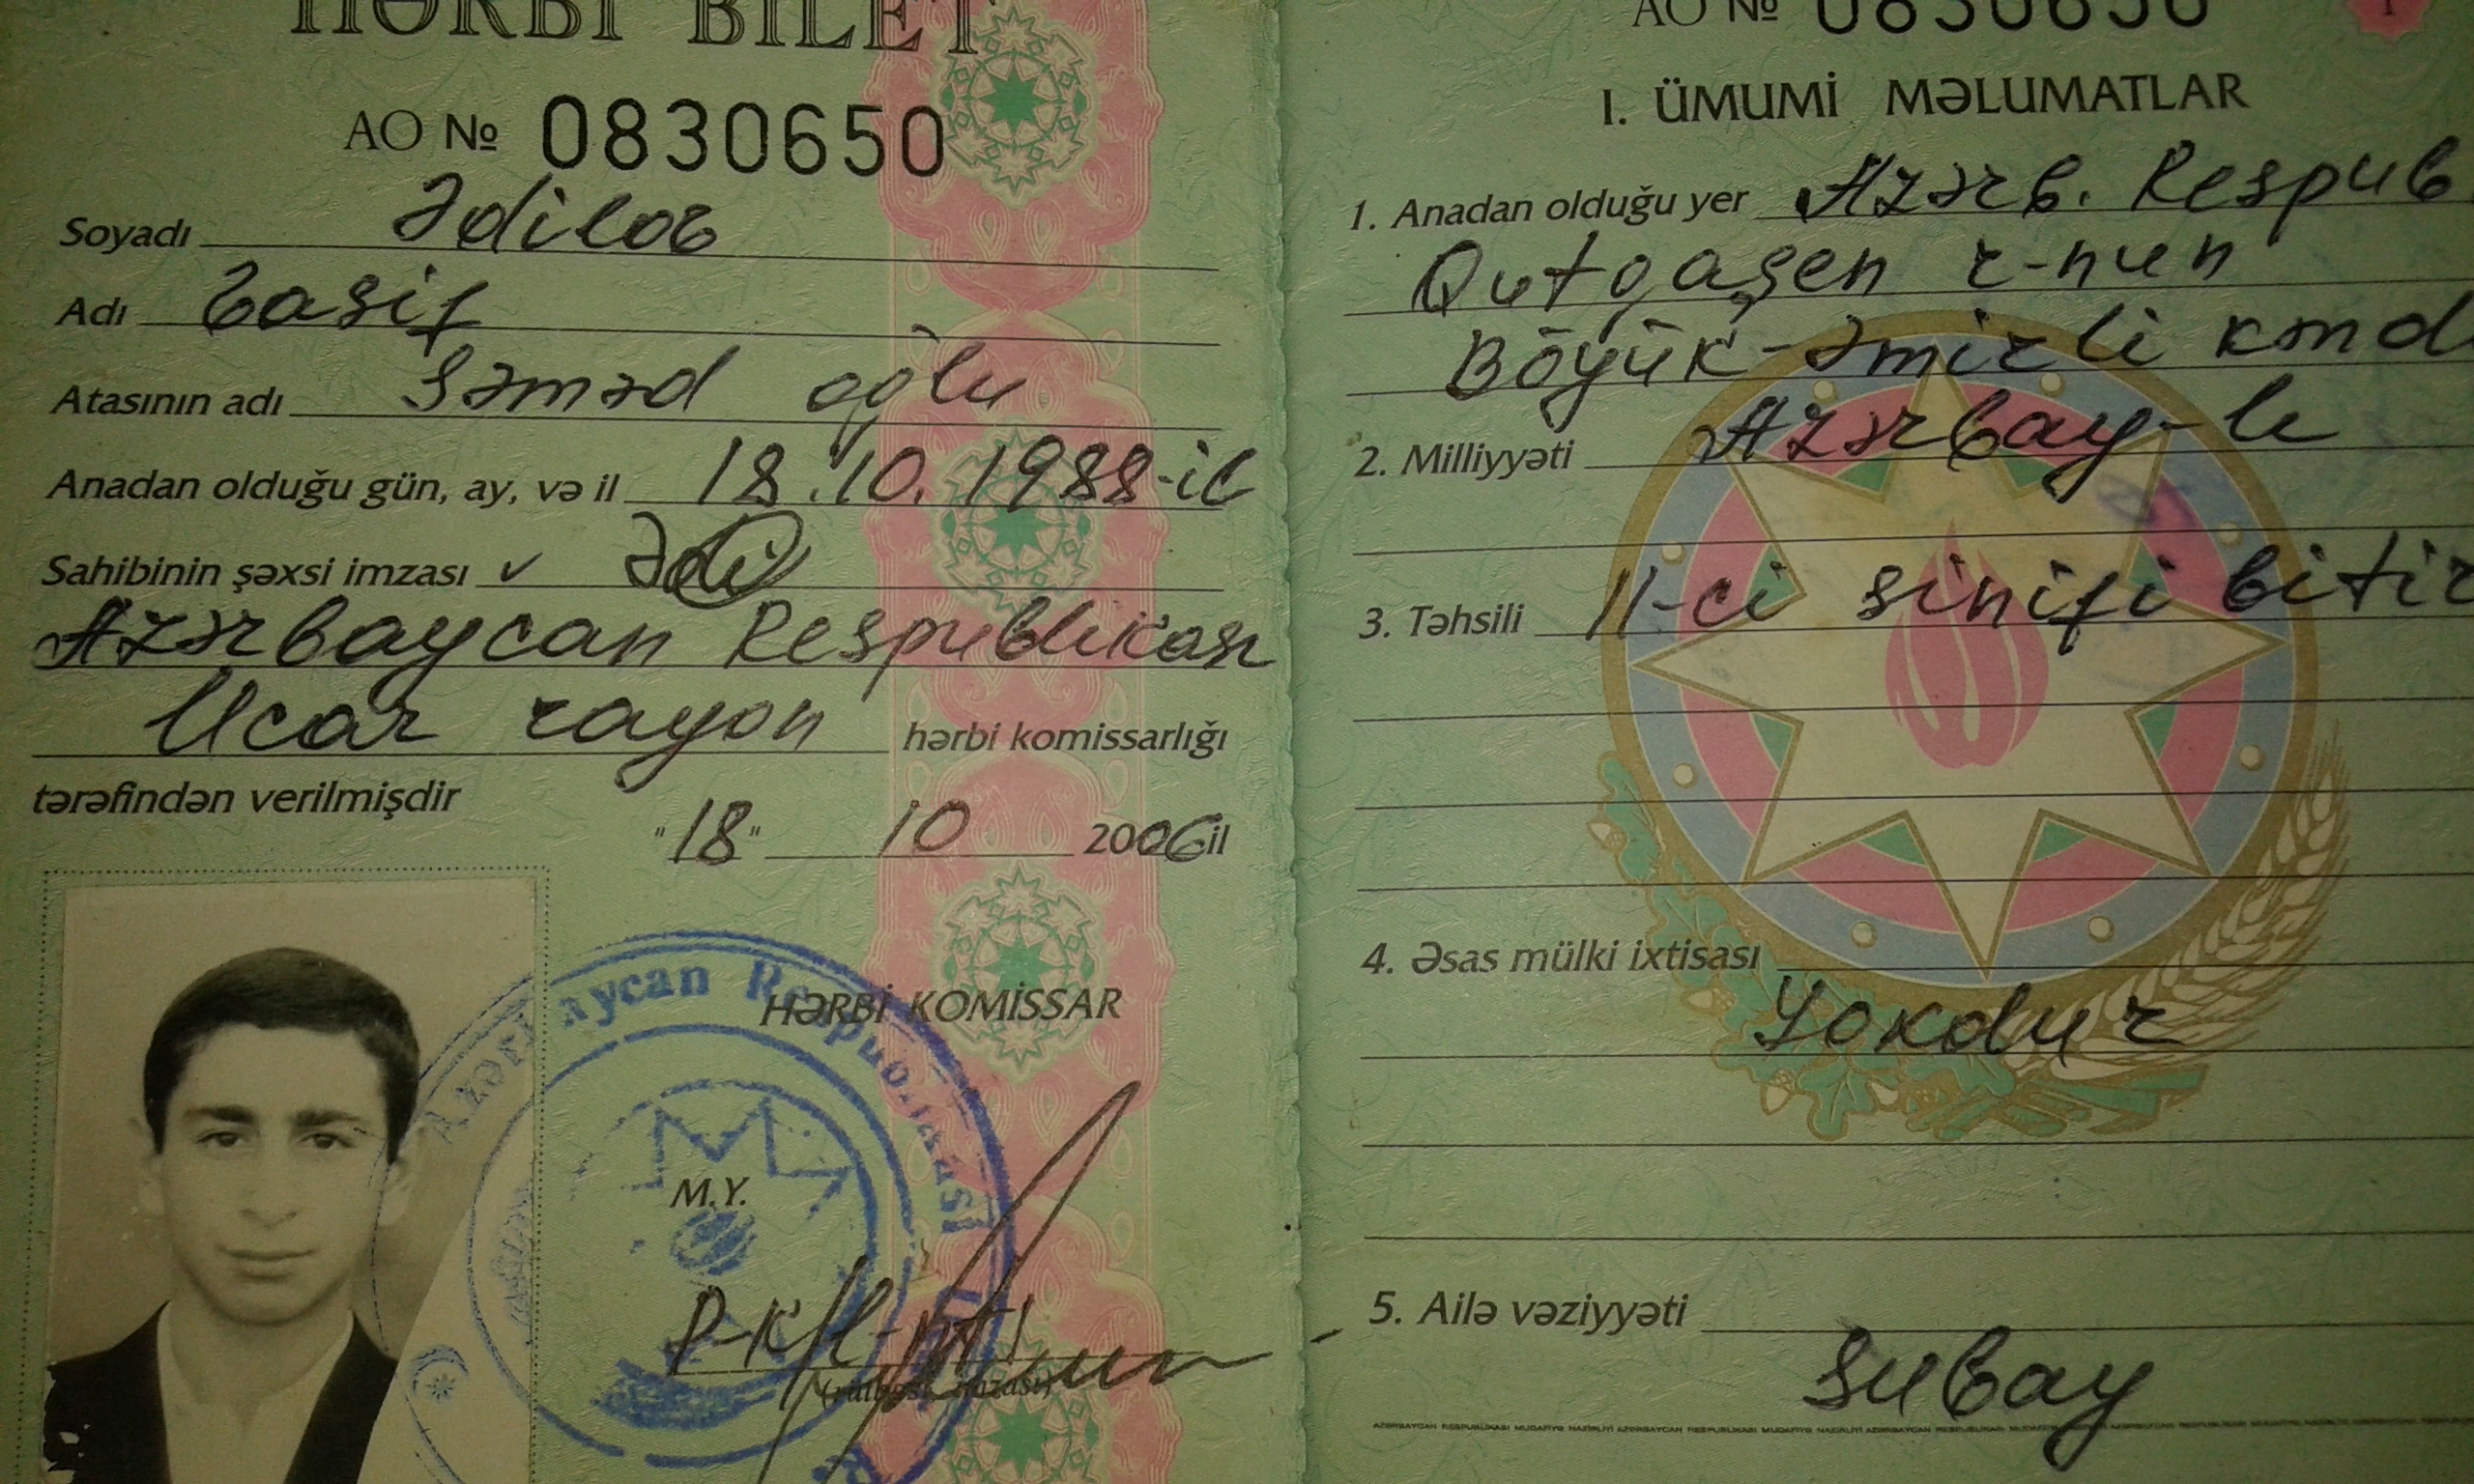 HƏRBİ BİLET
AO № 0830650
Soyadı Ədilov
Adı Vasif
Atasının adı Səməd oğlu
Anadan olduğu gün, ay, və il 18.10.1988-il
Sahibinin şəxsi imzası v Ədi
Azərbaycan Respublikası
Ucar rayon hərbi komissarlığı
tərəfindən verilmişdir
"18" 10 2006 il
HƏRBİ KOMİSSAR
Azərbaycan Respublikası
M.Y.
(rütbəsi, imzası)
AO № 0830650
1
I. ÜMUMİ MƏLUMATLAR
1. Anadan olduğu yer Azərb. Respub.
Qutqaşen r-nun
Böyük-Əmirli kənd
2. Milliyyəti Azərbay-lı
3. Təhsili 11-ci sinifi bitir
4. Əsas mülki ixtisası
Yoxdur
5. Ailə vəziyyəti
Subay
AZƏRBAYCAN RESPUBLİKASI MÜDAFİƏ NAZİRLİYİ AZƏRBAYCAN RESPUBLİKASI MÜDAFİƏ NAZİRLİYİ AZƏRBAYCAN RESPUBLİKASI